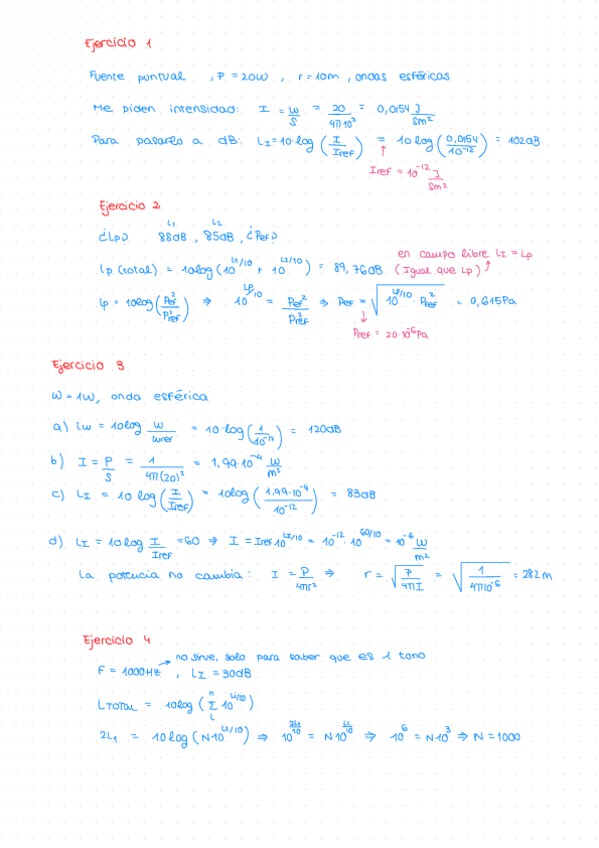 Ejercicio 1
Fuente puntual , P = 20W , r = 10m , ondas esféricas
Me piden intensidad: I = W/S = 20/4π10² = 0,0154 J/Sm²
Para pasarlo a dB: LI = 10·log (I/Iref) = 10 log (0,0154/10⁻¹²) = 102dB
Iref = 10⁻¹² J/Sm²
Ejercicio 2
L1 L2
¿Lp? 88dB , 85dB , ¿Pef?
en campo libre LI = Lp
Lp (total) = 10log (10^L1/10 + 10^L2/10) = 89,76dB (Igual que Lp)
Lp = 10log (Pef²/Pref²) ⇒ 10^Lp/10 = Pef²/Pref² ⇒ Pef = √(10^Lp/10 · Pref²) = 0,615Pa
Pref = 20·10⁻⁶Pa
Ejercicio 3
W = 1W, onda esférica
a) Lw = 10log W/Wref = 10·log (1/10⁻¹²) = 120dB
b) I = P/S = 1/4π(20)² = 1,99·10⁻⁴ W/m²
c) LI = 10 log (I/Iref) = 10log (1.99·10⁻⁴/10⁻¹²) = 83dB
d) LI = 10log I/Iref = 60 ⇒ I = Iref 10^LI/10 = 10⁻¹² · 10^60/10 = 10⁻⁶ W/m²
La potencia no cambia: I = P/4πr² ⇒ r = √(P/4πI) = √(1/4π10⁻⁶) = 282m
Ejercicio 4
no sirve, solo para saber que es 1 tono
F = 1000Hz , LI = 30dB
LTOTAL = 10log (Σ 10^Li/10)
2L1 = 10log (N10^L1/10) ⇒ 10^2L1/10 = N10^L1/10 ⇒ 10⁶ = N10³ ⇒ N = 1000